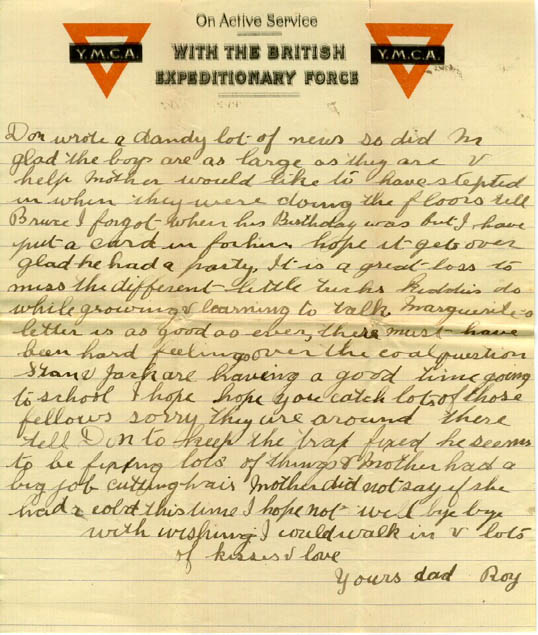 On Active Service
Y.M.C.A. Y.M.C.A.
WITH THE BRITISH
EXPEDITIONARY FORCE
Don wrote a dandy lot of news so did M
glad the boys are as large as they are &
help Mother would like to have stepted
in when they were doing the floors tell
Bruce I forgot when his Birthday was but I have
put a card in for him hope it gets over
glad he had a party. It is a great loss to
miss the different little tricks kiddies do
while growing & learning to talk Marguerite's
letter is as good as ever, there must have
been hard feelings over the coal question
Stan & Jack are having a good time going
to school I hope hope you catch lots of those
fellows sorry they are around there
tell Don to keep the trap fixed he seems
to be fixing lots of things & Mother had a
big job cutting hair Mother did not say if she
had a cold this time I hope not well bye bye
with wishing I could walk in & lots
of kisses & love
Yours dad Roy